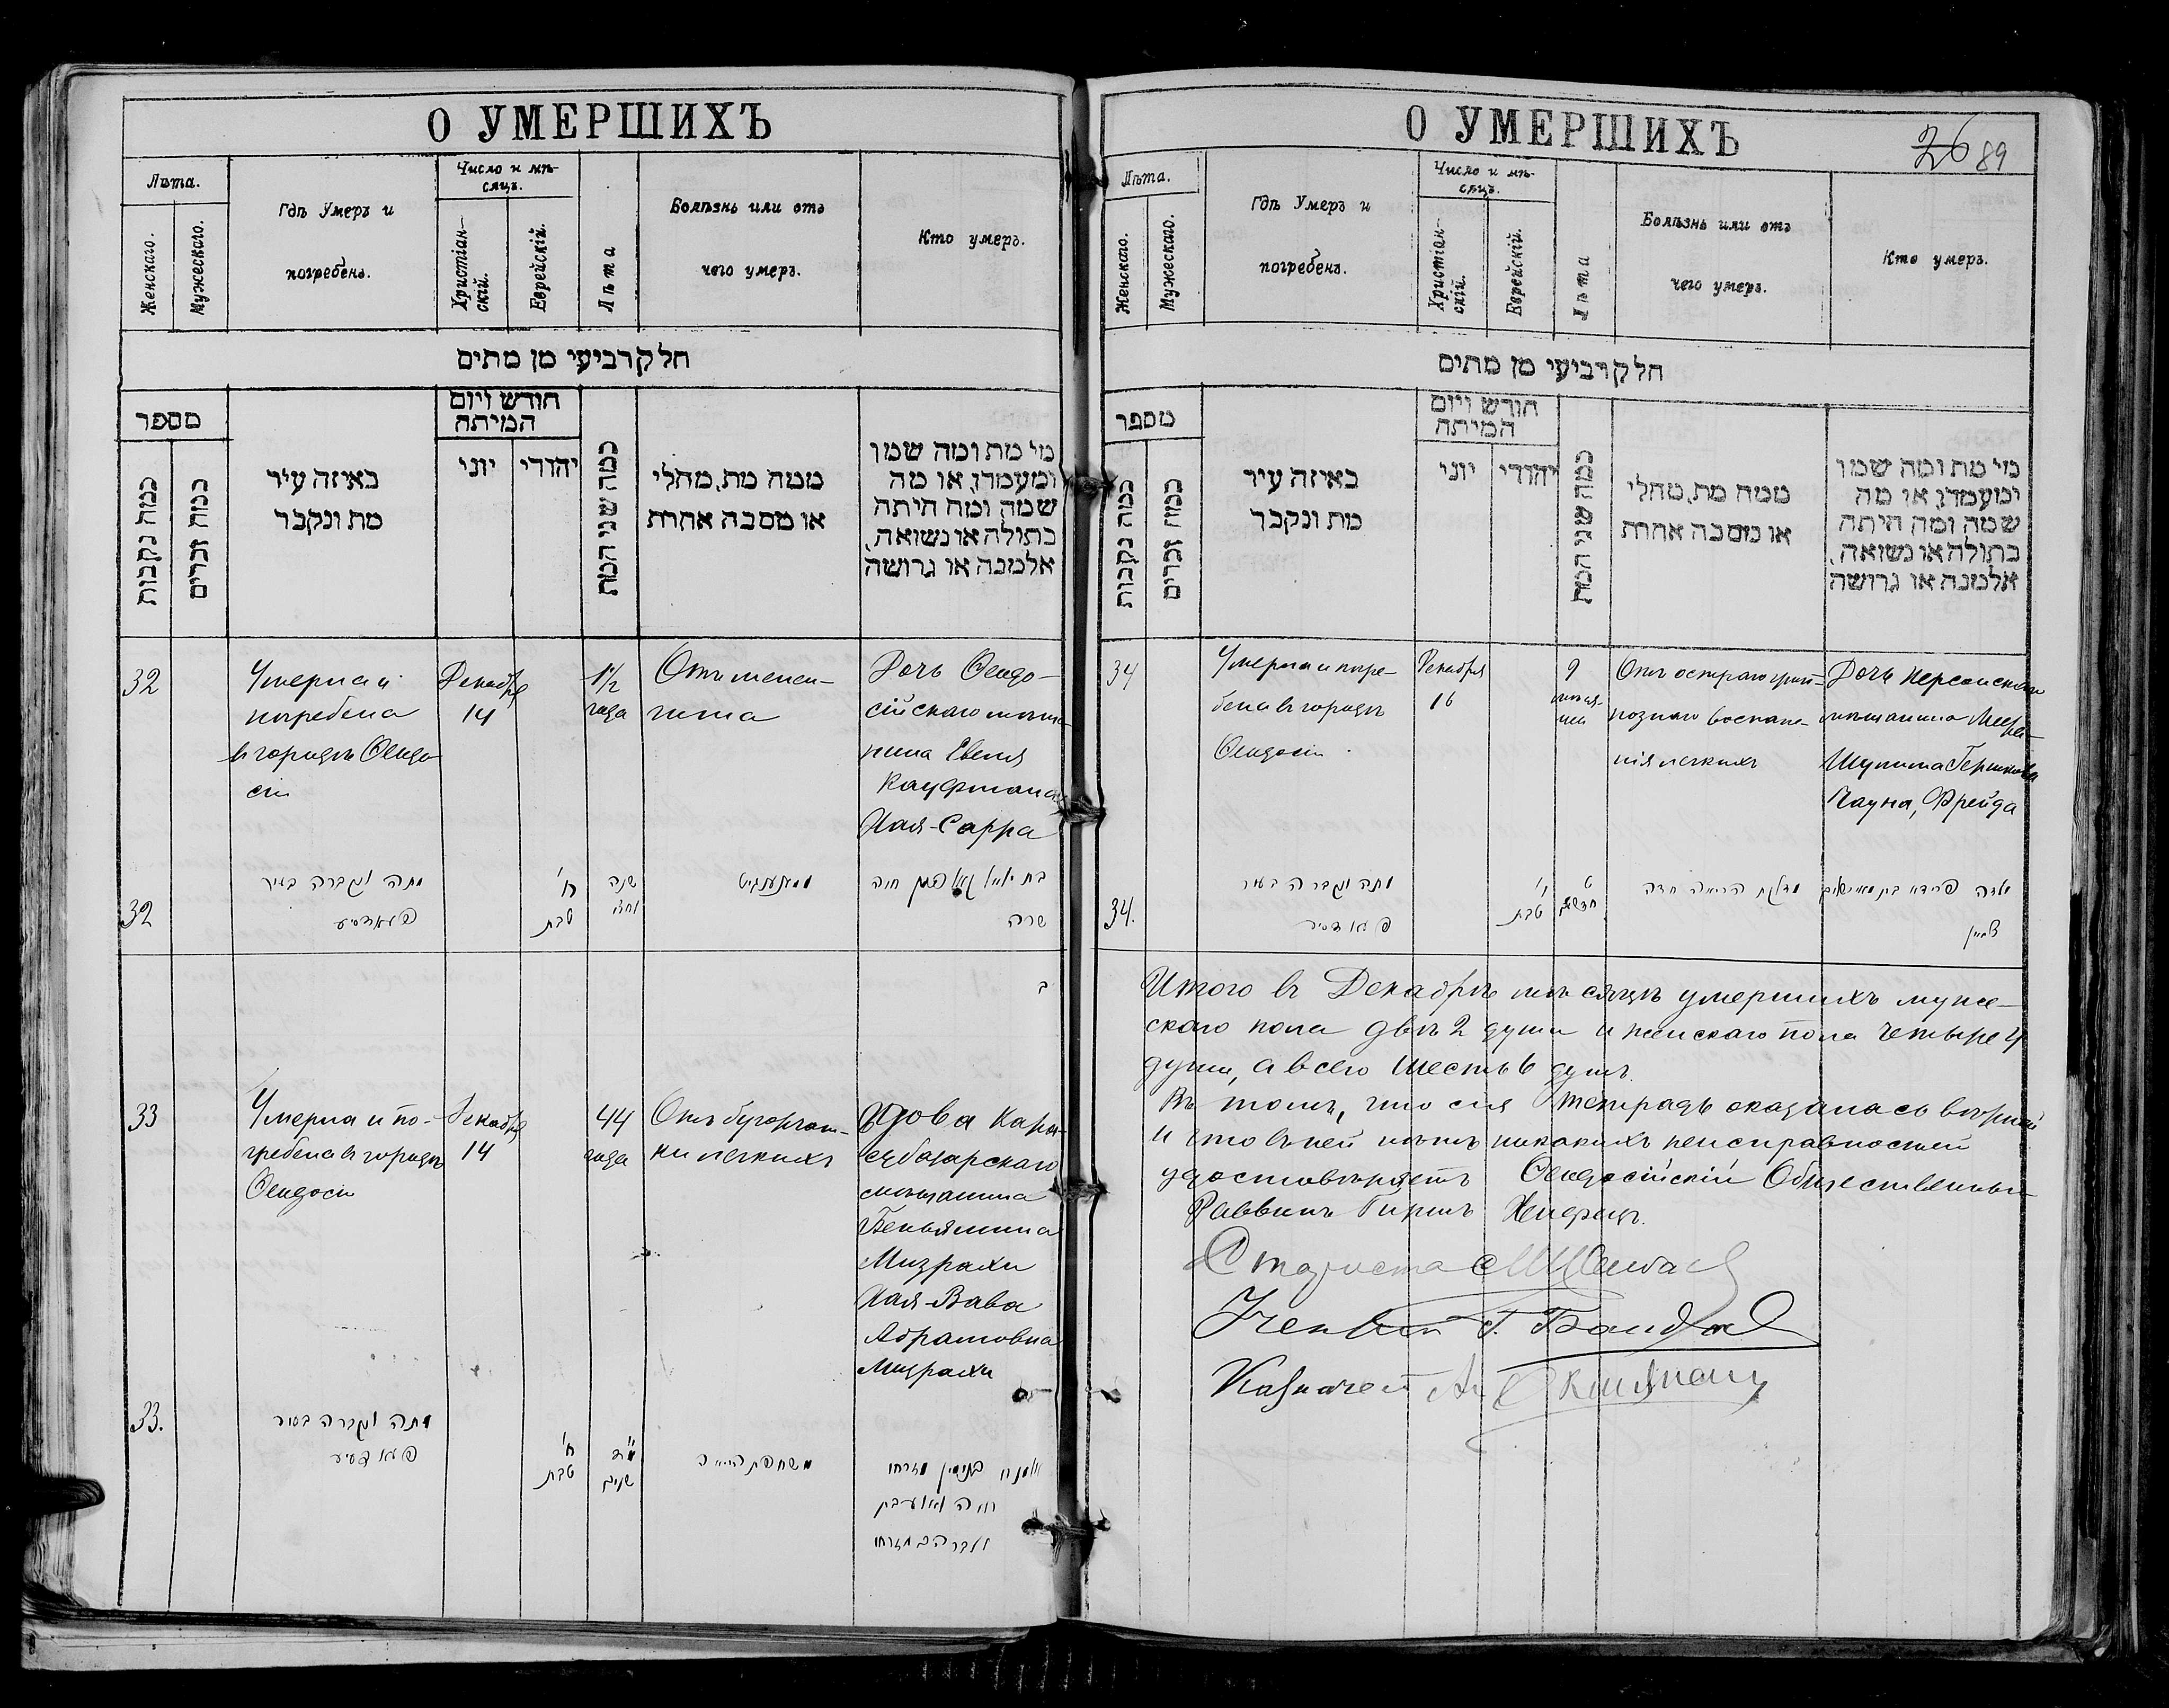 О УМЕРШИХЪ
Лѣта.
Женскаго.
Мужескаго.
Гдѣ Умеръ и
погребенъ.
Число и мѣ-
сяцъ.
Христіан-
скій.
Еврейскій.
Лѣта
Болѣзнь или отъ
чего умеръ.
Кто умеръ.
חלק רביעי מן מתים
מספר
כמה נקבות
כמה זכרים
באיזה עיר
מת ונקבר
חודש ויום
המיתה
יוני
יהודי
כמה שני המת
ממה מת, מחלי
או מסבה אחרת
מי מת ומה שמו
ומעמדו, או מה
שמה ומה היתה
בתולה או נשואה,
אלמנה או גרושה
32
Умерла и
погребена
въ городѣ Ѳеодо
сіи
Декабря
14
1½
года
Отъ менин-
гита
Дочь Ѳеодо-
сійскаго мѣща-
нина Евеля
Кауфмана
Хая-Сарра
32
מתה ונקברה בעיר
ח'
טבת
שנה
וחצי
שרה
33
Умерла и по-
гребена въ городѣ
Ѳеодосіи
Декабря
14
44
года
Отъ бугорчат-
ки легкихъ
Вдова Кара-
субазарскаго
мѣщанина
Беньямина
Мизрахи
Хая-Вава
Абрамовна
Мизрахи
33.
מתה ונקברה בעיר
ח'
טבת
מ"ד
שנים
משחפת הריאה
אלמנת בנימין מזרחי
О УМЕРШИХЪ
26 89
Лѣта.
Женскаго.
Мужескаго.
Гдѣ Умеръ и
погребенъ.
Число и мѣ-
сяцъ.
Христіан-
скій.
Еврейскій.
Лѣта
Болѣзнь или отъ
чего умеръ.
Кто умеръ.
חלק רביעי מן מתים
מספר
כמה נקבות
כמה זכרים
באיזה עיר
מת ונקבר
חודש ויום
המיתה
יוני
יהודי
כמה שני המת
ממה מת, מחלי
או מסבה אחרת
מי מת ומה שמו
ומעמדו, או מה
שמה ומה היתה
בתולה או נשואה,
אלמנה או גרושה
34
Умерла и погре-
бена въ городѣ
Ѳеодосіи
Декабря
16
9
мѣся-
цей
Отъ остраго круп-
познаго воспале-
нія легкихъ
Дочь Херсонскаго
мѣщанина Меера
Шулима Гершкова
Чауна, Фрейда
34.
מתה ונקברה בעיר
י'
טבת
ט
חדשים
Итого въ Декабрѣ мѣсяцѣ умершихъ муже-
скаго пола двѣ 2 души и женскаго пола четыре 4
души, а всего шесть 6 душъ.
Въ томъ, что сія тетрадь оказалась вѣрной
и что въ ней нѣтъ никакихъ неисправностей
удостовѣряетъ Ѳеодосійскій Общественный
Раввинъ Гиршъ
Староста
Ученый Г.
Казначей А.